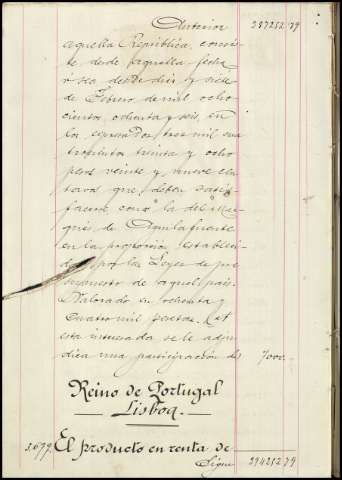 Anterior 287252.79
aquella República, consis-
te desde aquella fecha
ó sea desde diez y siete
de Febrero de mil ocho-
cientos ochenta y seis, en
los expresados tres mil cua-
trocientos treinta y ocho
pesos veinte y nueve cen-
tavos que deben satis-
facerse, como la del Mar-
qués de Aguilafuente
en la proporcion estableci-
da por las Leyes de pre-
supuestos de aquel pais.
Valorado en ochenta y
cuatro mil pesetas. A
esta interesada se le adju-
dica una participación de 7000.
Reino de Portugal
Lisboa.
3.679. El producto en renta de
Sigue 294252.79